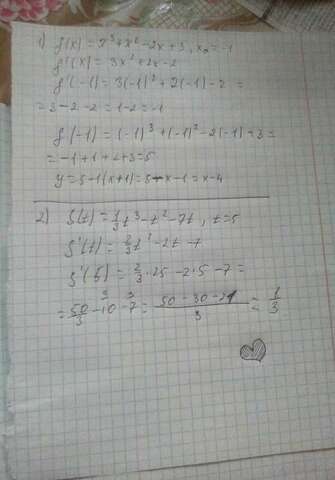 1) f(x) = x³ + x² - 2x + 3, x₀ = -1
f'(x) = 3x² + 2x - 2
f'(-1) = 3(-1)² + 2(-1) - 2 =
= 3 - 2 - 2 = 1 - 2 = -1
f(-1) = (-1)³ + (-1)² - 2(-1) + 3 =
= -1 + 1 + 2 + 3 = 5
y = 5 - 1(x+1) = 5 - x - 1 = x - 4
2) S(t) = 1/3 t³ - t² - 7t, t = 5
S'(t) = 2/3 t² - 2t - 7
S'(5) = 2/3 · 25 - 2 · 5 - 7 =
= 50/3 - 10 - 7 = (50 - 30 - 21)/3 = 1/3